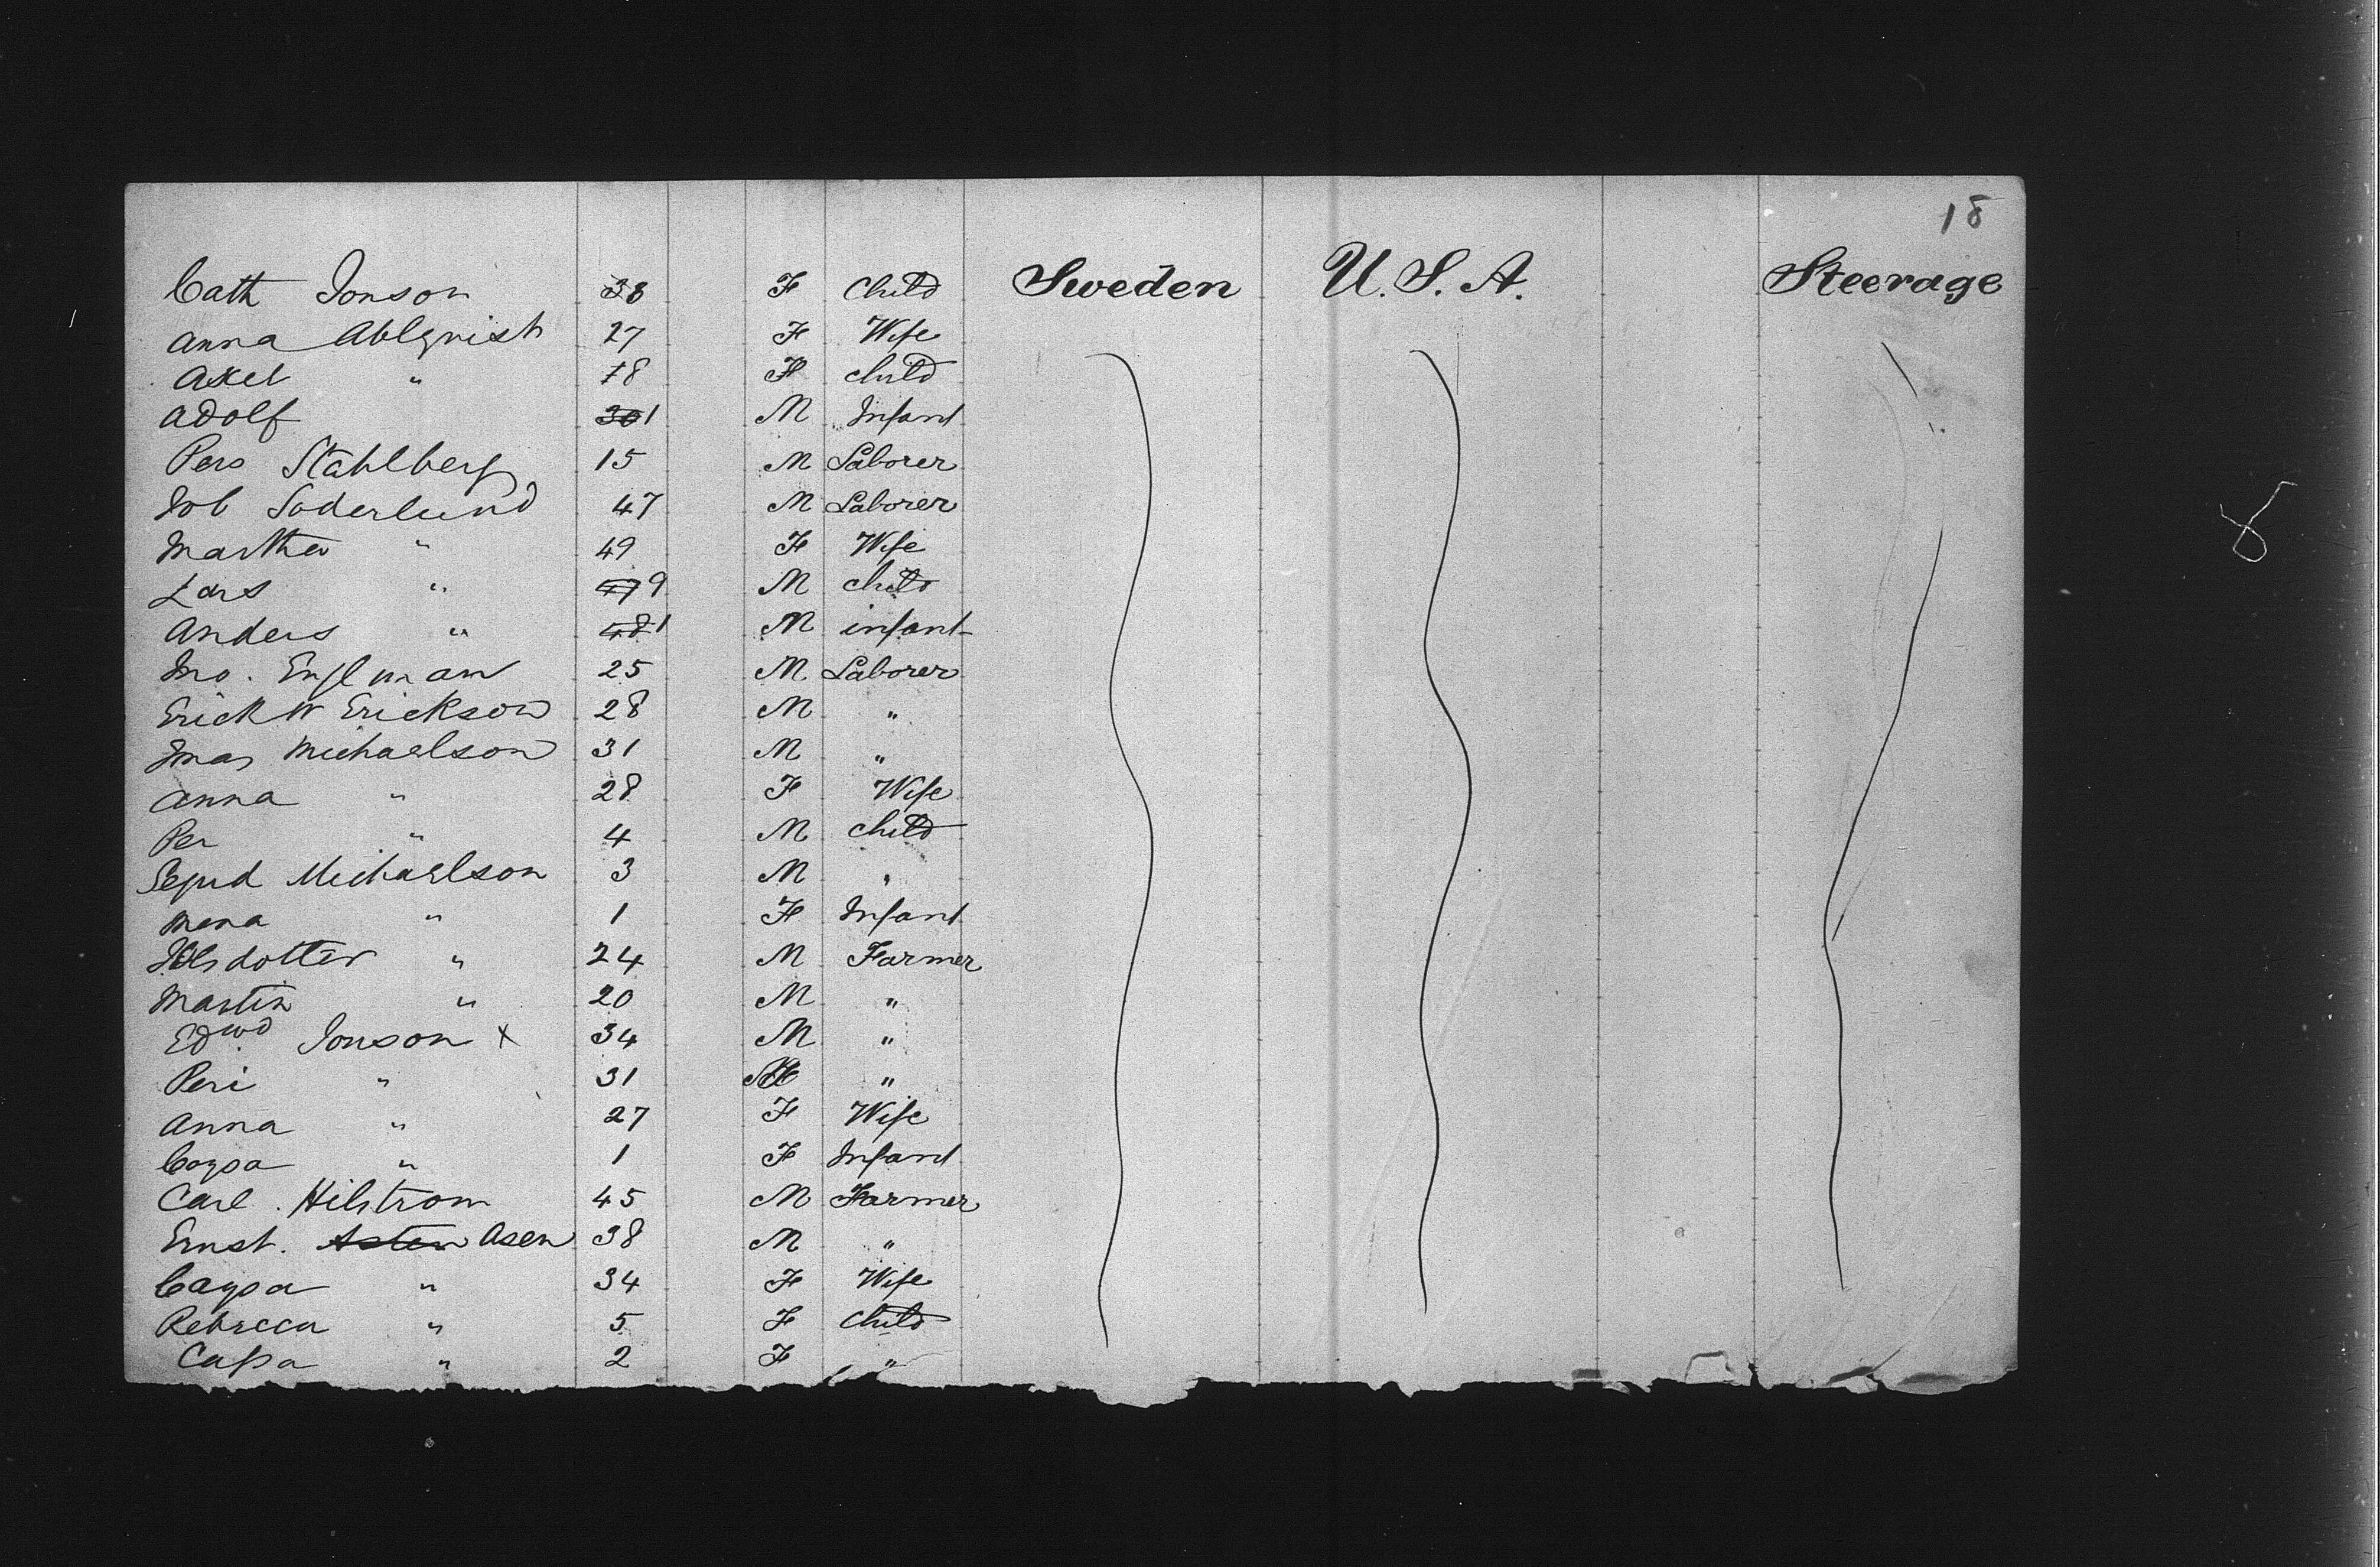 18
Cath Jonson 38 F Child Sweden U.S.A. Steerage
Anna Ahlqvist 27 F Wife
Axel " 18 F child
Adolf 1 M Infant
Pers Stahlberg 15 M Laborer
Job Soderlund 47 M Laborer
Martha " 49 F Wife
Lars " 9 M child
Anders " 1 M infant
Jno. Englman 25 M Laborer
Erick W Erickson 28 M "
Michaelson 31 M "
Anna " 28 F Wife
Per " 4 M child
Michaelson 3 M "
Mena " 1 F Infant
" 24 M Farmer
Martin " 20 M "
Edwd Jonson x 34 M "
Peri " 31 "
Anna " 27 F Wife
" 1 F Infant
Carl Hilstrom 45 M Farmer
Ernst. Asten Asen 38 M "
Caysa " 34 F Wife
Rebecca " 5 F Child
" 2 F "
8